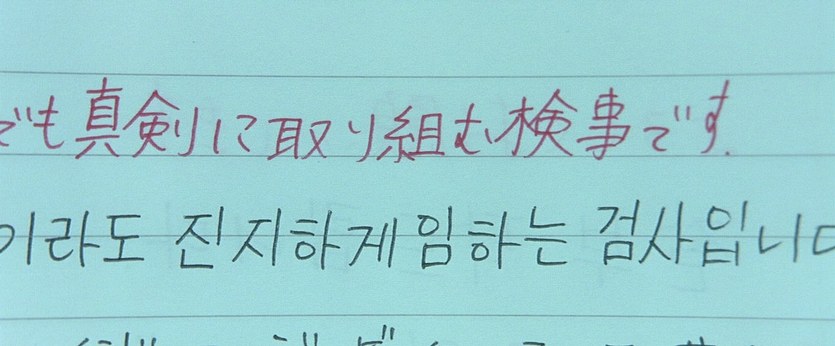 でも真剣に取り組む検事です.
이라도 진지하게임하는 검사입니다